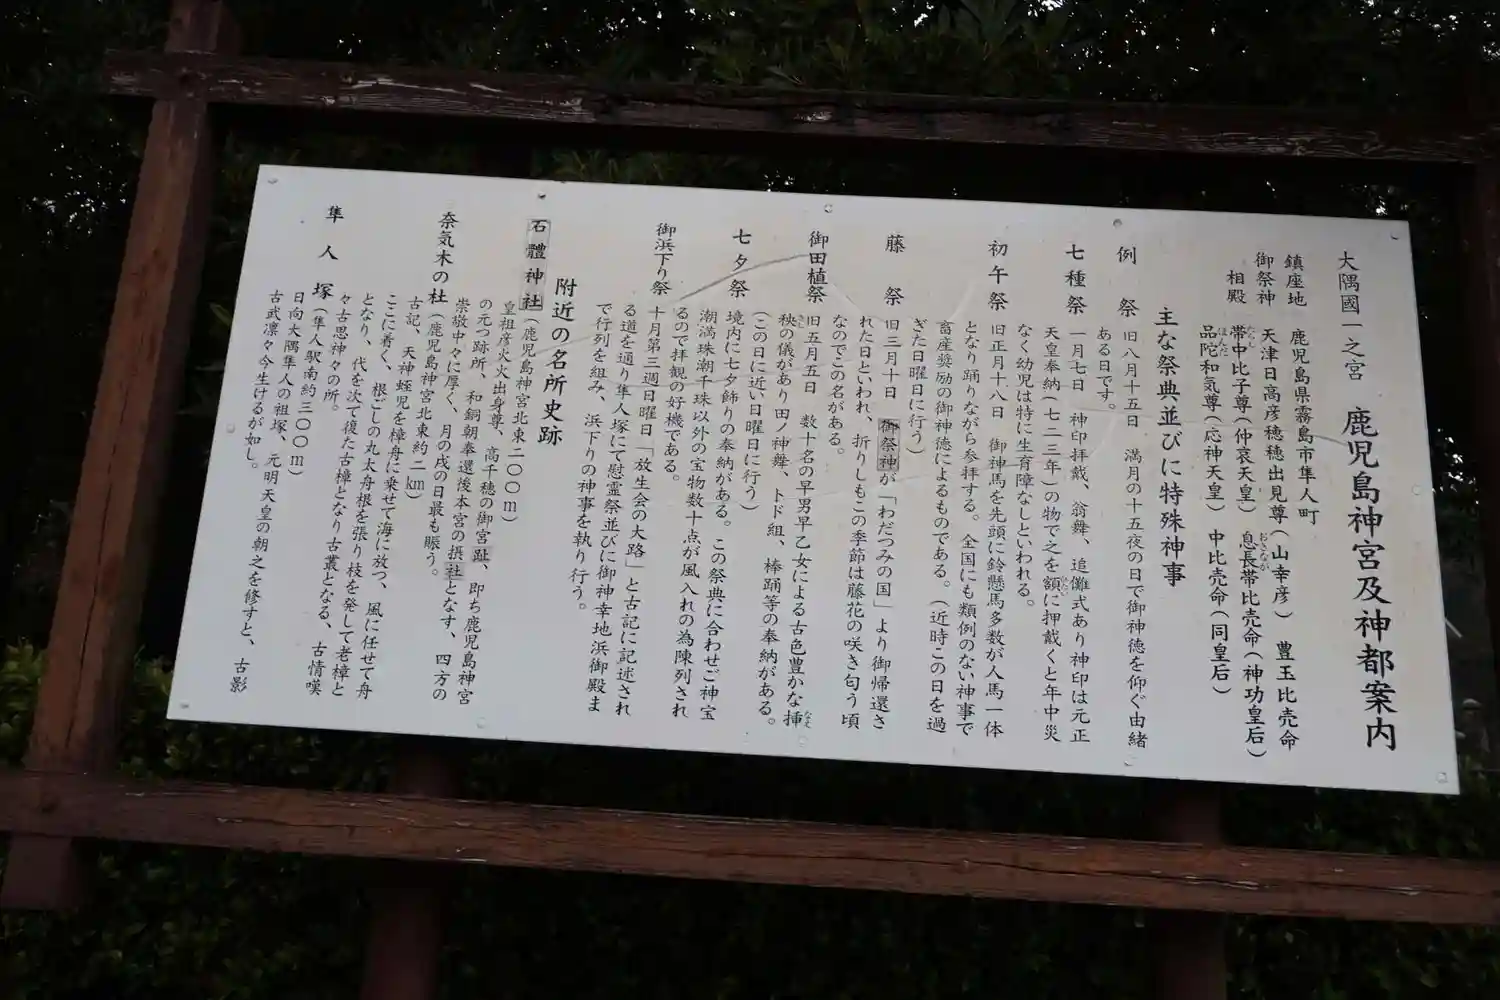 大隅國一之宮 鹿児島神宮及神都案内
鎮座地 鹿児島県霧島市隼人町
御祭神 天津日高彦穂穂出見尊(山幸彦) 豊玉比売命
相殿 帯中比子尊(仲哀天皇) 息長帯比売命(神功皇后)
品陀和気尊(応神天皇) 中比売命(同皇后)
主な祭典並びに特殊神事
例祭 旧八月十五日 満月の十五夜の日で御神徳を仰ぐ由緒
ある日です。
七種祭 一月七日 神印拝戴、翁舞、追儺式あり神印は元正
天皇奉納(七二三年)の物で之を額に押戴くと年中災
なく幼児は特に生育障なしといわれる。
初午祭 旧正月十八日 御神馬を先頭に鈴懸馬多数が人馬一体
となり踊りながら参拝する。全国にも類例のない神事で
畜産奨励の御神徳によるものである。(近時この日を過
ぎた日曜日に行う)
藤祭 旧三月十日 御祭神が「わだつみの国」より御帰還さ
れた日といわれ、折りしもこの季節は藤花の咲き匂う頃
なのでこの名がある。
御田植祭 旧五月五日 数十名の早男早乙女による古色豊かな挿
秧の儀があり田ノ神舞、トド組、棒踊等の奉納がある。
(この日に近い日曜日に行う)
七夕祭 境内に七夕飾りの奉納がある。この祭典に合わせご神宝
潮満珠潮干珠以外の宝物数十点が風入れの為陳列され
るので拝観の好機である。
御浜下り祭 十月第三週日曜日「放生会の大路」と古記に記述され
る道を通り隼人塚にて慰霊祭並びに御神幸地浜御殿ま
で行列を組み、浜下りの神事を執り行う。
附近の名所史跡
石體神社(鹿児島神宮北東二〇〇m)
皇祖彦火火出身尊、高千穂の御宮趾、即ち鹿児島神宮
の元つ跡所、和銅朝奉遷後本宮の摂社となす、四方の
崇敬中々に厚く、月の戌の日最も賑う。
奈気木の杜(鹿児島神宮北東約二km)
古記、天神蛭児を樟舟に乗せて海に放つ、風に任せて舟
ここに着く、根ごしの丸太舟根を張り枝を発して老樟と
となり、代を次て復た古樟となり古叢となる、古情嘆
々古思神々の所。
隼人塚(隼人駅南約三〇〇m)
日向大隅隼人の祖塚、元明天皇の朝之を修すと、古影
古武凛々今生けるが如し。